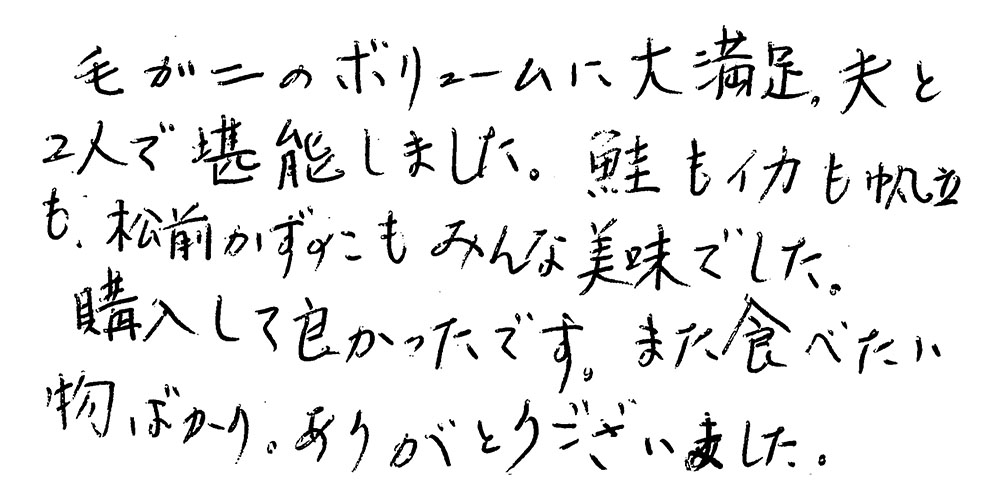 毛ガニのボリュームに大満足。夫と
2人で堪能しました。鮭もイカも帆立
も、松前かずのこもみんな美味でした。
購入して良かったです。また食べたい
物ばかり。ありがとうございました。